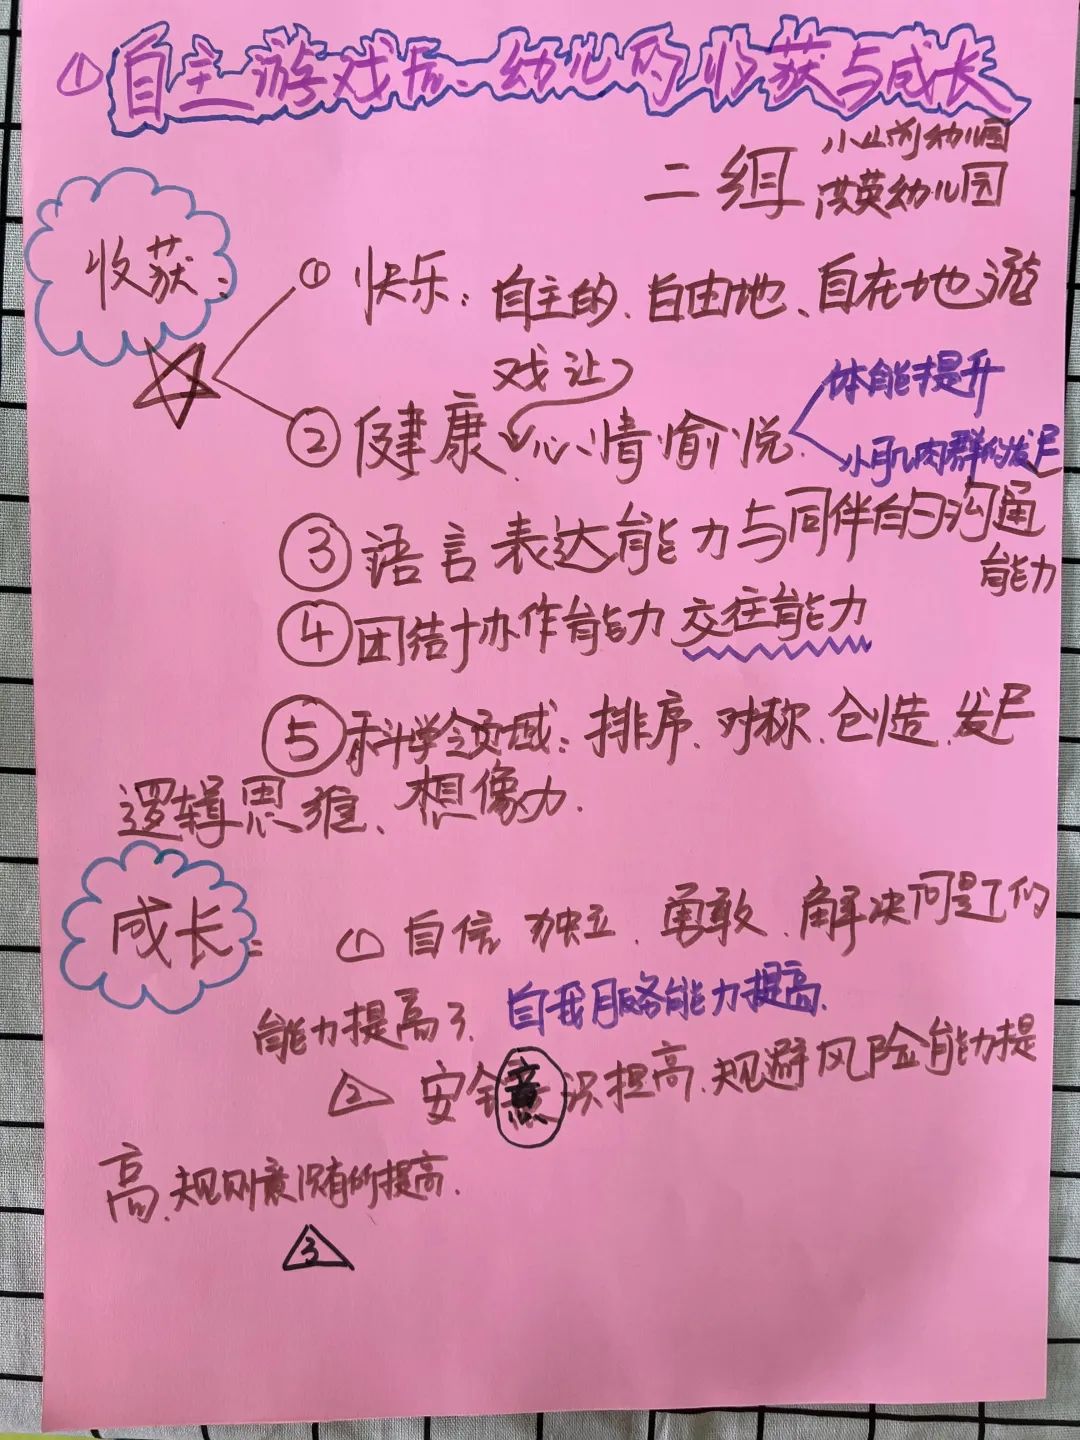 ① 自主游戏后、幼儿的收获与成长
二组 小山前幼儿园
洪英幼儿园
收获:
① 快乐: 自主的、自由地、自在地游
戏让
② 健康、心情愉悦. 体能提升
小肌肉群的发展
③ 语言表达能力与同伴的沟通
能力
④ 团结协作能力 交往能力
⑤ 科学领域: 排序、对称、创造、发展
逻辑思维、想像力.
成长:
① 自信 独立、勇敢、解决问题的
能力提高了、自我服务能力提高.
2 安全意识提高、规避风险能力提
高、规则意识有所提高.
3